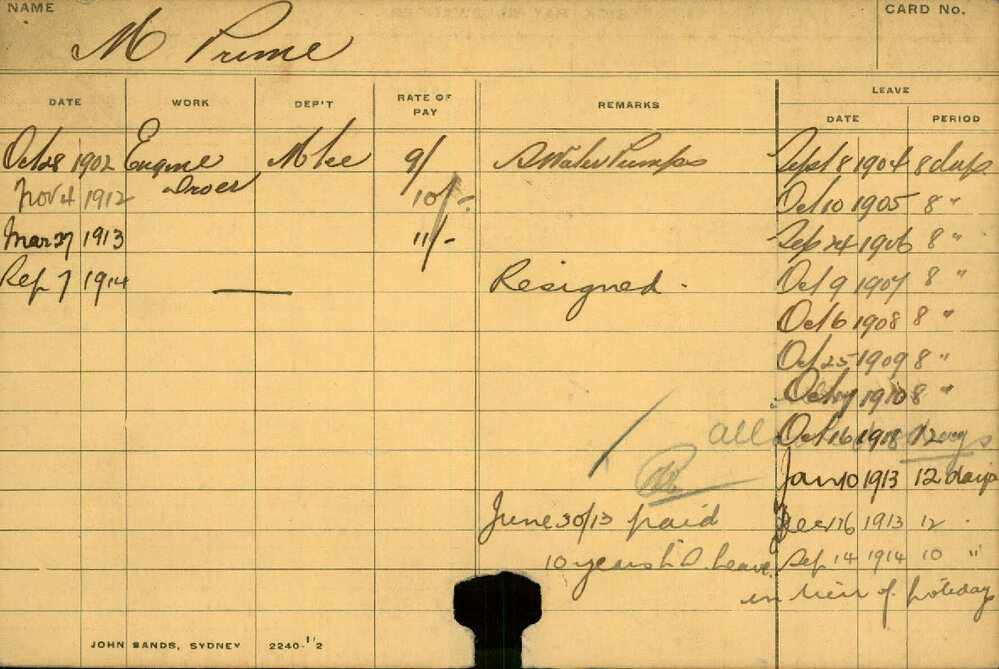 NAME
CARD No.
M Prime
DATE WORK DEP'T RATE OF PAY REMARKS LEAVE
DATE PERIOD
Oct 28 1902 Engine 9/ S Water Pumps Sept 8 1904 8 days
Nov 4 1912 Driver 10/-. Oct 10 1905 8 "
Mar 27 1913 11/- Sep 24 1906 8 "
Sep 7 1914 — Resigned. Oct 9 1907 8 "
Oct 6 1908 8 "
Oct 25 1909 8 "
Oct 1910 8 "
all Oct 16 12
Jan 10 1913 12 days
June 30/13 paid Dec 16 1913 12 "
10 years leave. Sep 14 1914 10 "
in lieu of holiday
JOHN SANDS, SYDNEY 2240-1'2